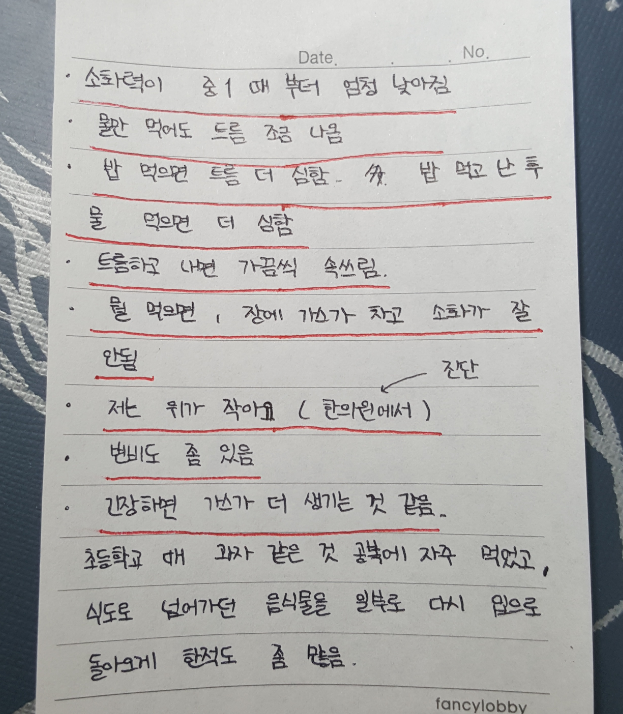 Date. . . No.
· 소화력이 중1 때 부터 엄청 낮아짐
· 물만 먹어도 트름 조금 나옴
· 밥 먹으면 트름 더 심함. 밥 먹고 난 후
물 먹으면 더 심함
· 트름하고 내면 가끔씩 속쓰림.
· 뭘 먹으면, 장에 가스가 차고 소화가 잘
안됨
진단
· 저는 위가 작아요 (한의원에서)
· 변비도 좀 있음
· 긴장하면 가스가 더 생기는 것 같음.
초등학교 때 과자 같은 것 공복에 자주 먹었고,
식도로 넘어가던 음식물을 일부로 다시 입으로
돌아오게 한적도 좀 많음.
fancylobby